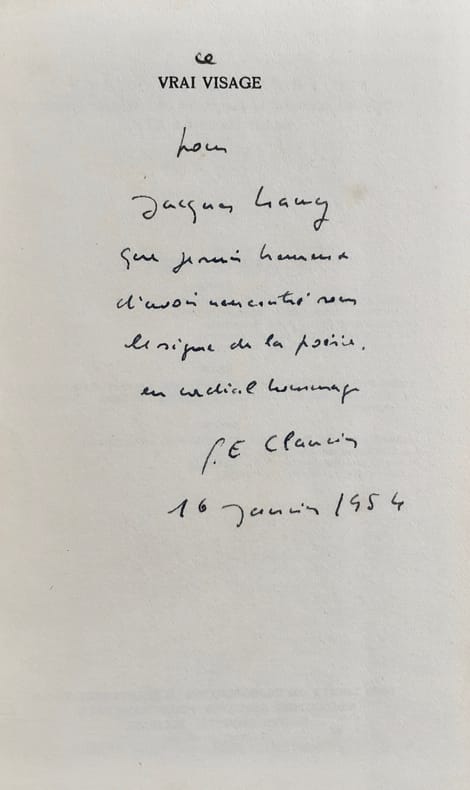 ce
VRAI VISAGE
pour
Jacques
que je suis heureux
d'avoir rencontré sous
le signe de la poésie.
en cordial hommage
G.E Clancier
16 janvier 1954